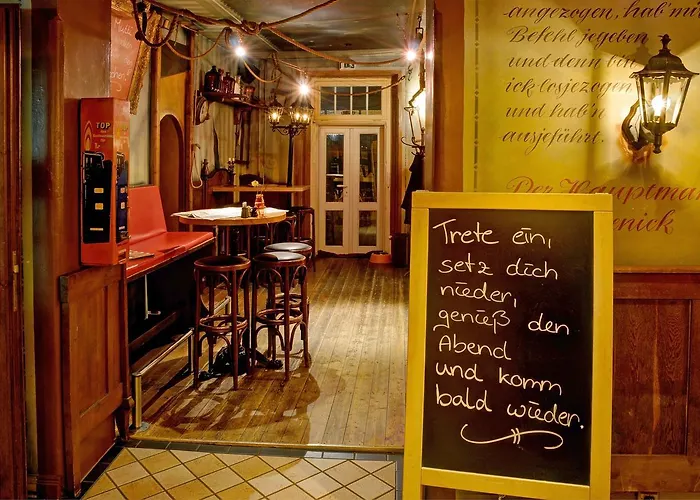 angezogen, hab' mir
Befehl jegeben
und denn bin
ick losjezogen
und hab'n
ausjeführt.
Der Hauptmann
TOP
Trete ein,
setz dich
nieder,
genieß den
Abend
und komm
bald wieder.